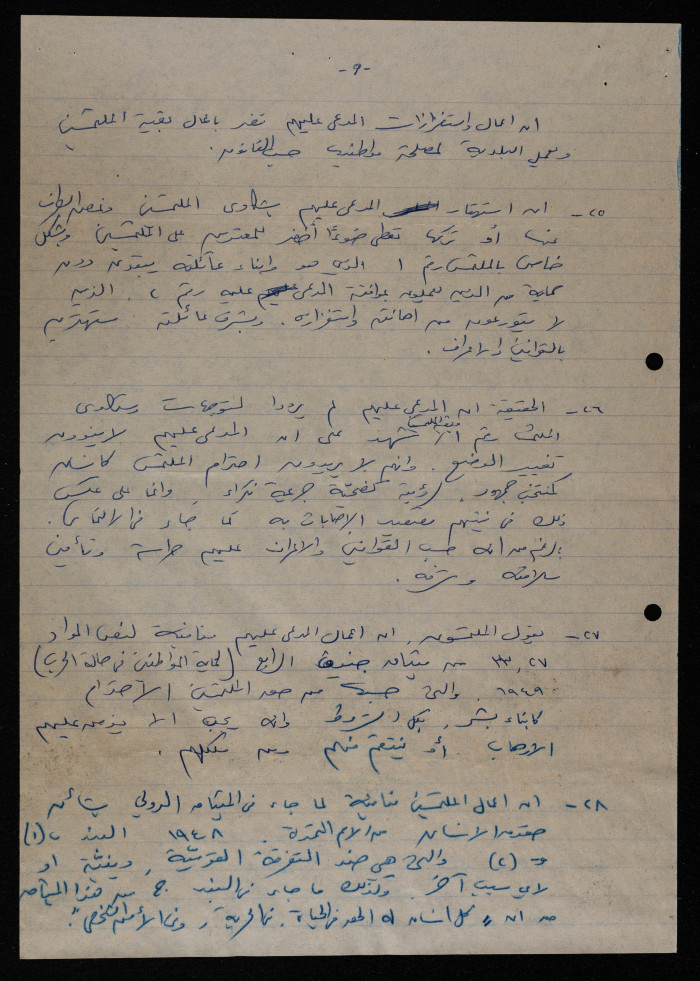 -٩-
ان اعمال واستفزازات المدعى عليهم تضر باعمال بقية الملتمسين
وعمل البلدية لمصلحة مواطنيها حسب القانون.
٢٥- ان استهتار المدعى عليهم بشكاوى الملتمسين وغض الطرف
عنها أو تركها تعطي ضوءًا أخضر للمعتدين على الملتمسين وبشكل
خاص بالملتمس رقم ١ الذي هو وابناء عائلته يبقون دون
حماية من الذين يعملون بموافقة المدعى عليه رقم ٢، الذين
لا يتورعون من اهانته واستفزازه، وبشرف عائلته مستهترين
بالقوانين والاعراف.
٢٦- الحقيقة ان المدعى عليهم لم يردوا لتوجهات وشكاوى
الملتمس رقم ١ تشهد على ان المدعى عليهم لا ينوون
تغيير الوضع. وانهم لا يريدون احترام الملتمس كانسان
كمنتخب جمهور، رؤيته كضحية جريمة نكراء، وانما على عكس
ذلك في نيتهم الاصابات به كما جاء في الالتماس.
بالرغم من انه حسب القوانين والاعراف عليهم حراسة وتأمين
سلامته وشرفه.
٢٧- يقول الملتمسون، ان اعمال المدعى عليهم منافية لنص المواد
٢٧، ٣٣ من ميثاق جنيف الرابع (لحماية المواطنين في حالة الحرب)
١٩٤٩، والتي حسبها من حق الملتمسين الاحترام
كابناء بشر، بكل الشروط وانه يجب الا يفرض عليهم
الارهاب أو ينتقم منهم ومن ملكهم.
٢٨- ان اعمال الملتمسين منافية لما جاء في الميثاق الدولي بشأن
حقوق الانسان من الامم المتحدة. ١٩٤٨ البند ٢(١)
و (٢) والتي هي ضد التفرقة القومية، دينية او
لاي سبب آخر. وكذلك ما جاء في البند ج من هذا الميثاق
من ان "لكل انسان له الحق في الحياة، في الحرية، وفي الأمان الشخصي".